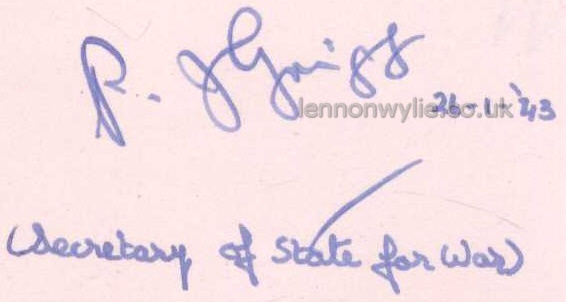 P. J Grigg
lennonwylie.co.uk
26-1-'43
(Secretary of State for War)